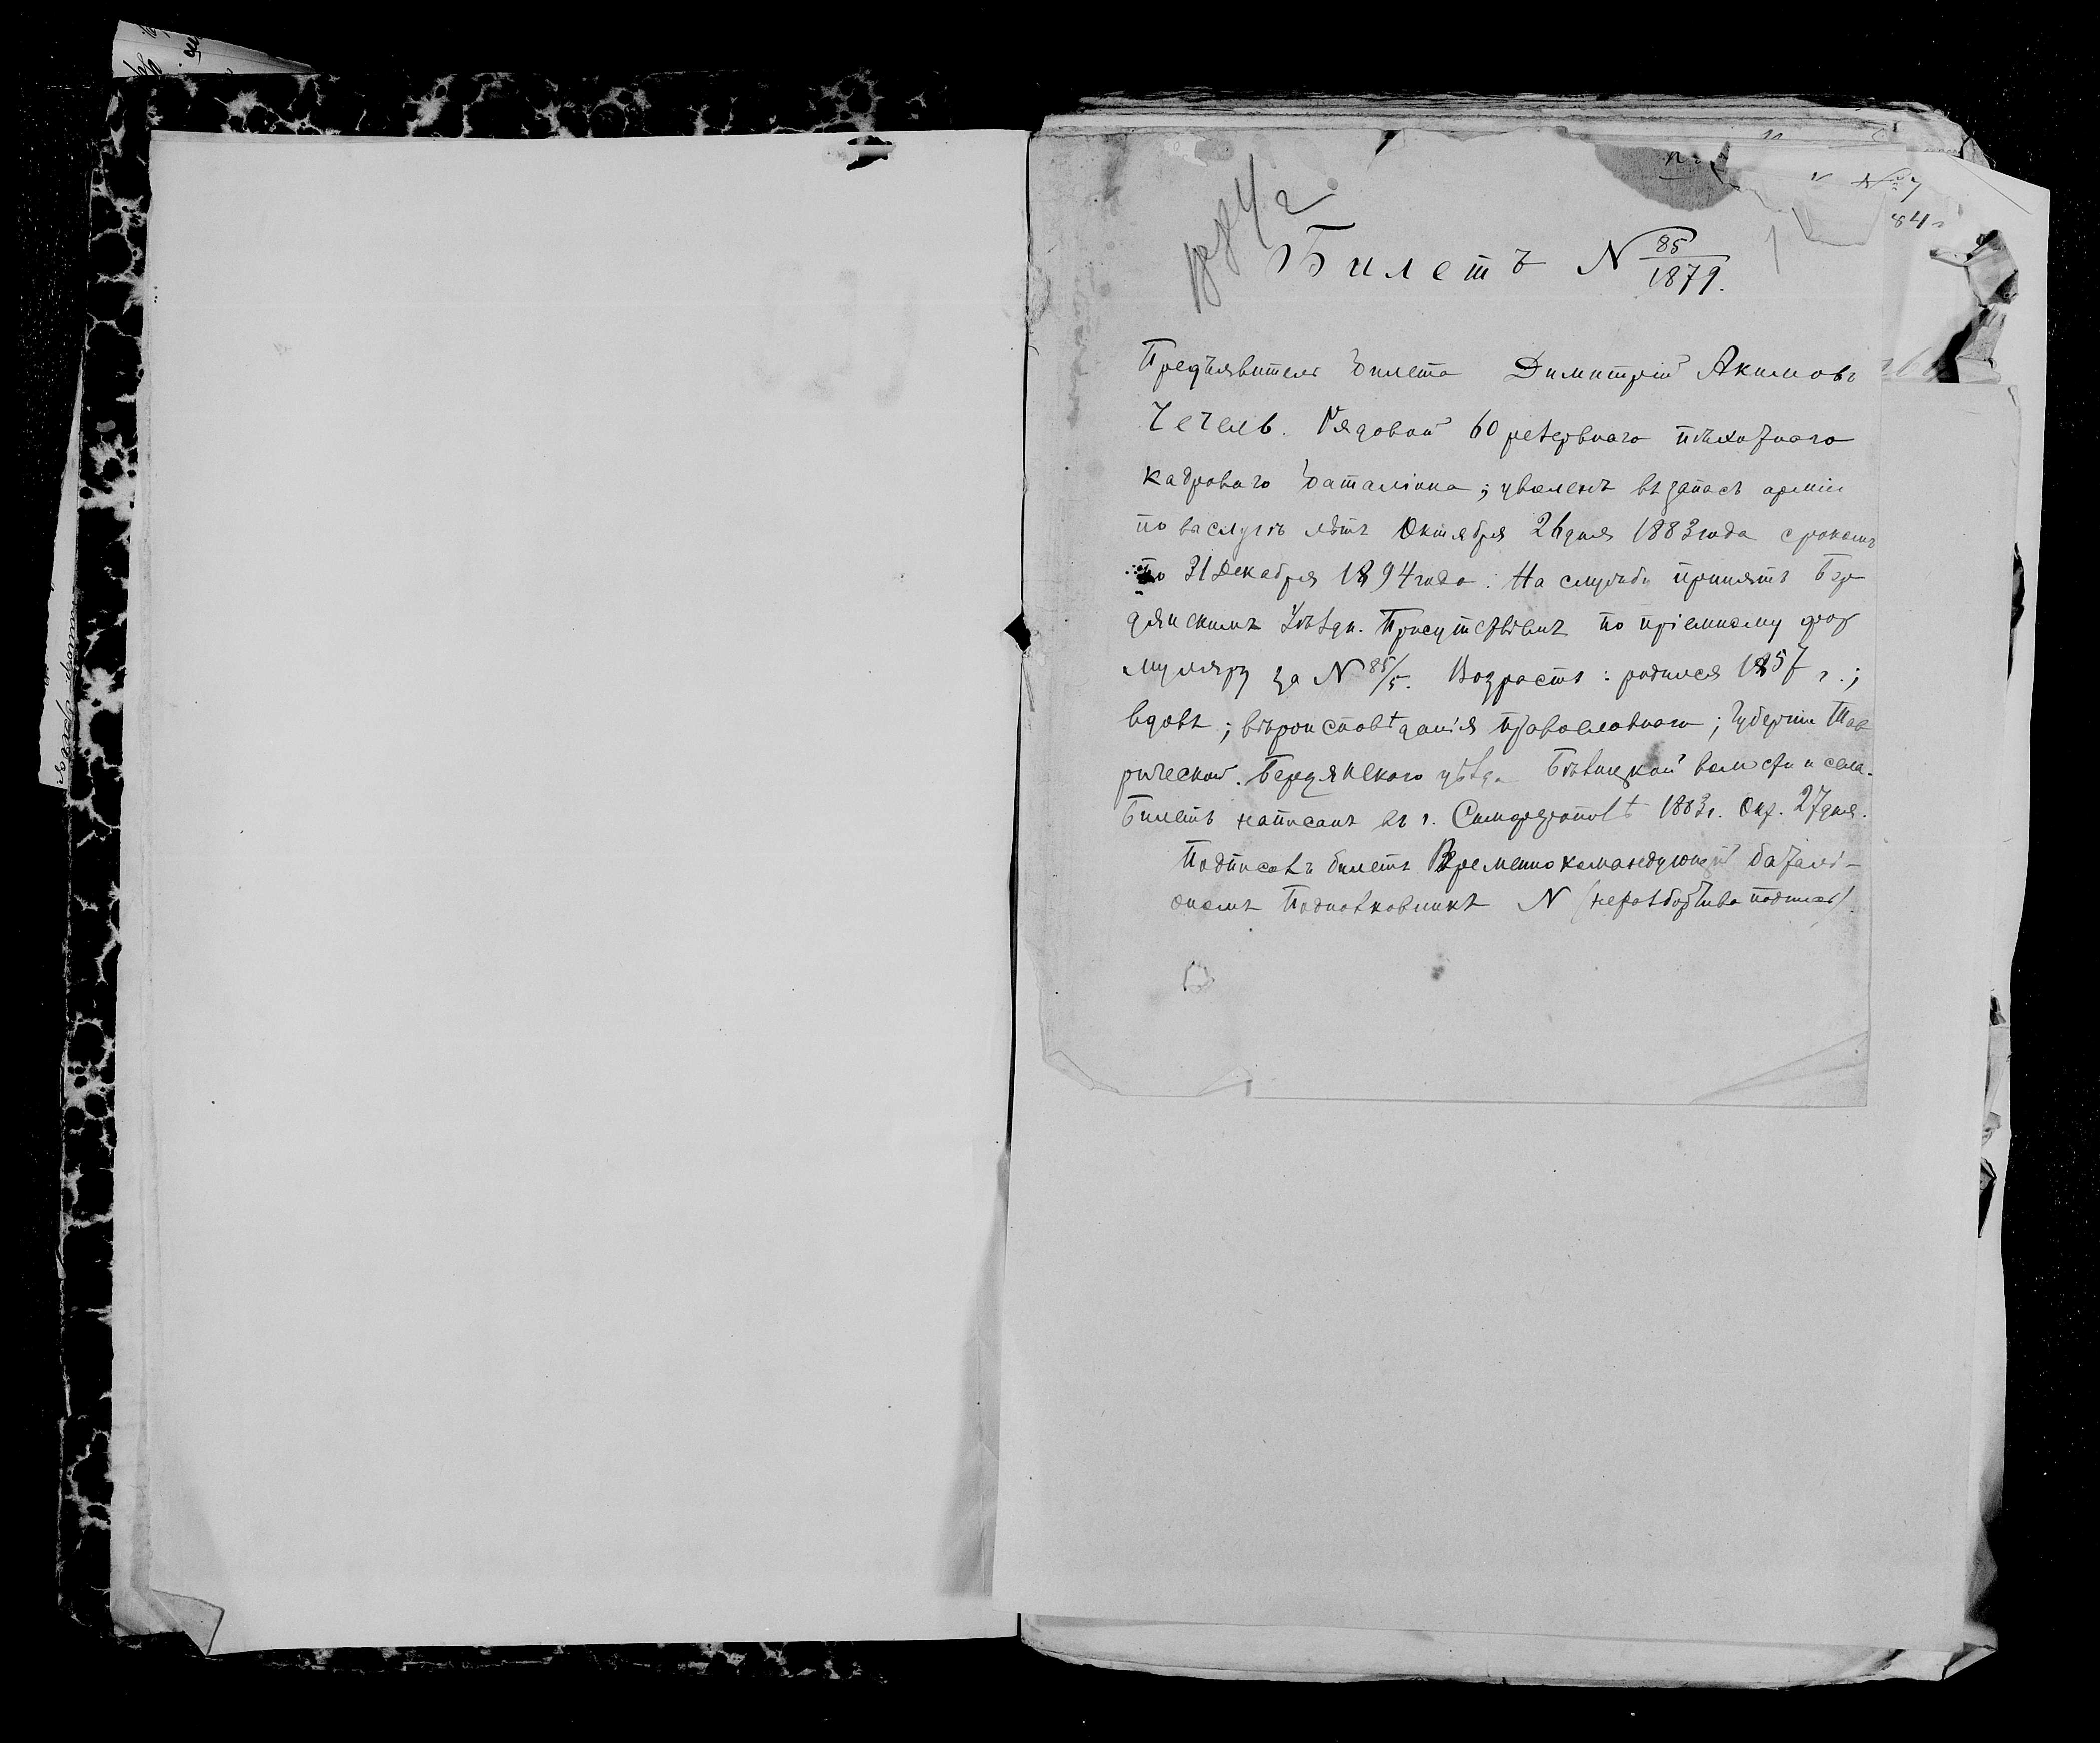 1884 г
Билетъ N 85/1879.
Предъявитель билета Димитрій Акимовъ
Чечель. Рядовой 60 резервнаго пѣхотнаго
кадроваго баталіона; уволенъ въ запасъ арміи
по выслугѣ лѣтъ Октября 26 дня 1883 года срокомъ
по 31 Декабря 1894 года. На службу принятъ Бер
дянскимъ Уѣздн. Присутствіемъ по пріемному фор
муляру за N 85/5. Возрастъ: родился 1857 г.;
вдовъ; вѣроисповѣданія православнаго; Губерніи Тав
рической. Бердянскаго уѣзда волости и села.
Билетъ написанъ въ г. Симферополѣ 1883 г. Окт. 27 дня.
Подписалъ билетъ Временно командующій баталі-
ономъ Подполковникъ N (неразборчива подпись).